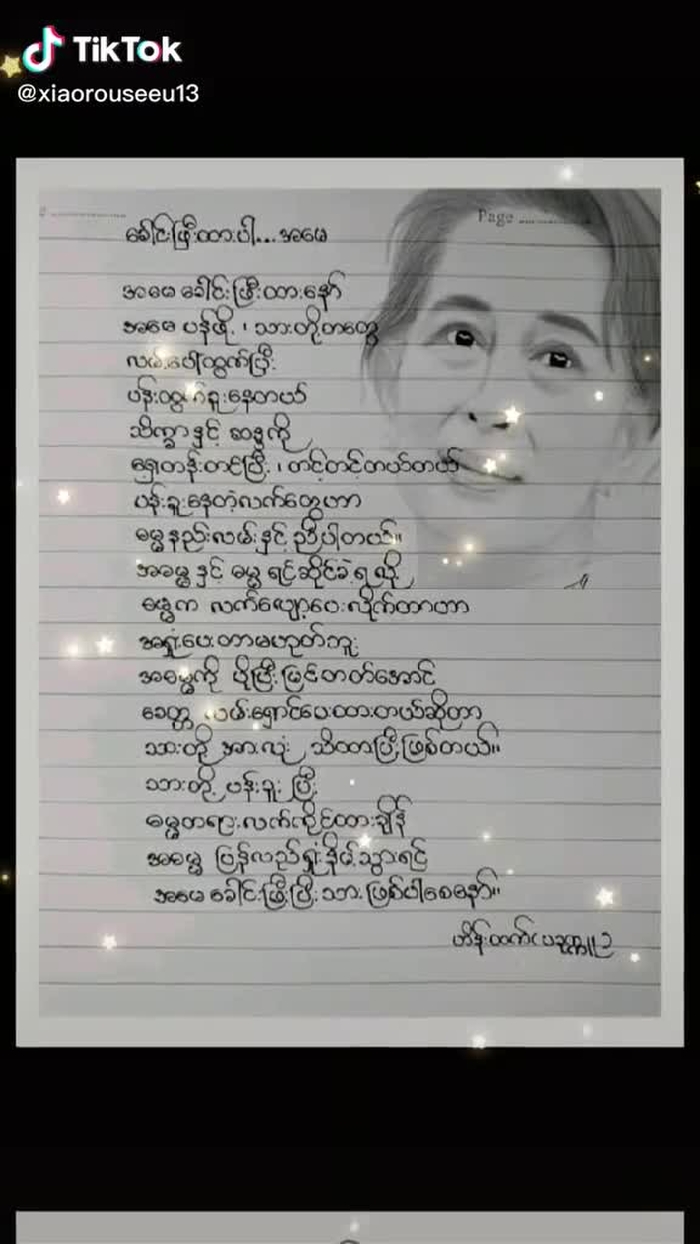 TikTok
@xiaorouseeu13
Page
ခေါင်းဖြီးထားပါ...အမေ
အမေ ခေါင်းဖြီးထားနော်
အမေ ပန်ဖို့ ၊ သားတို့တတွေ
လမ်းပေါ်ထွက်ပြီး
ပန်းထွက်ခူးနေတယ်
သိက္ခာနှင့် ဆန္ဒကို
ရှေ့တန်းတင်ပြီး ၊ တင့်တင့်တယ်တယ်
ပန်းခူးနေတဲ့လက်တွေဟာ
ဓမ္မနည်းလမ်းနှင့် ညီပါတယ်။
အဓမ္မနှင့် ဓမ္မ ရင်ဆိုင်ခဲ့ရလို့
ဓမ္မက လက်လျှော့ပေးလိုက်တာဟာ
အရှုံးပေးတာမဟုတ်ဘူး
အဓမ္မကို ပိုပြီးမြင်တတ်အောင်
ခေတ္တ လမ်းရှောင်ပေးထားတယ်ဆိုတာ
သားတို့ အားလုံး သိထားပြီးဖြစ်တယ်။
သားတို့ ပန်းခူးပြီး
ဓမ္မတရားလက်ကိုင်ထားချိန်
အဓမ္မ ပြန်လည်ရှုံးနိမ့်သွားရင်
အမေ ခေါင်းဖြီးပြီးသား ဖြစ်ပါစေနော်။
ဟိန်းထက်